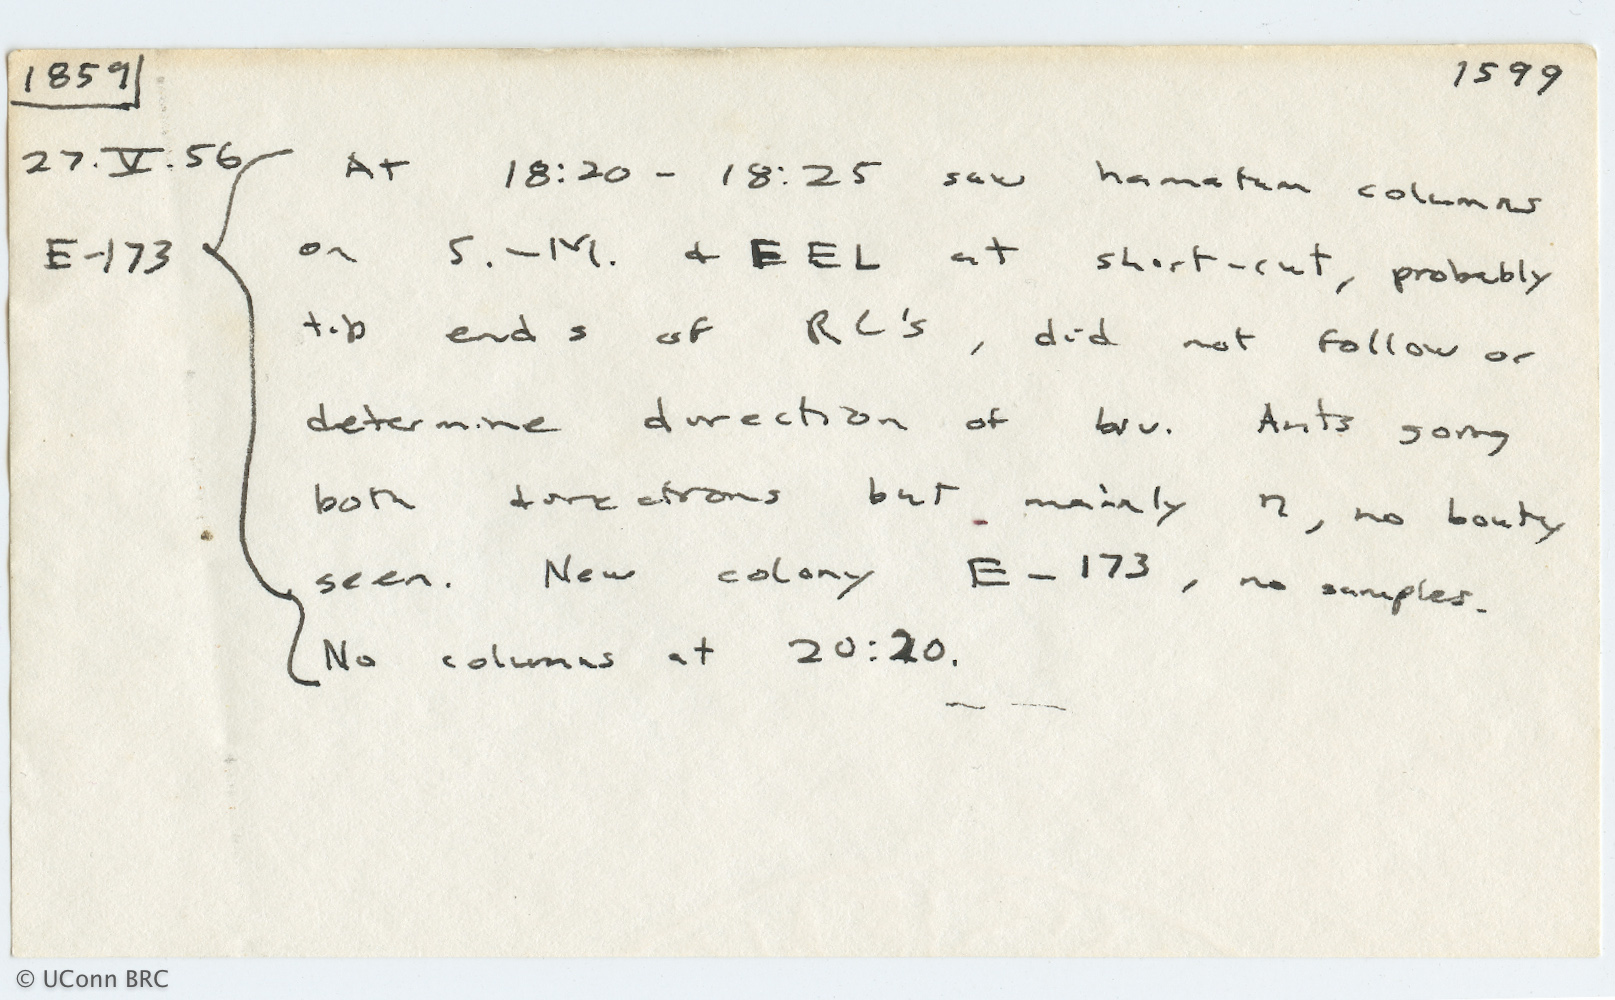 1859 1599
27.V.56 At 18:20 - 18:25 saw hamatum columns
E-173 on S.-M. & EEL at short-cut, probably
tip ends of RC's, did not follow or
determine direction of biv. Ants going
both directions but mainly n, no booty
seen. New colony E-173, no samples.
No columns at 20:20.
© UConn BRC